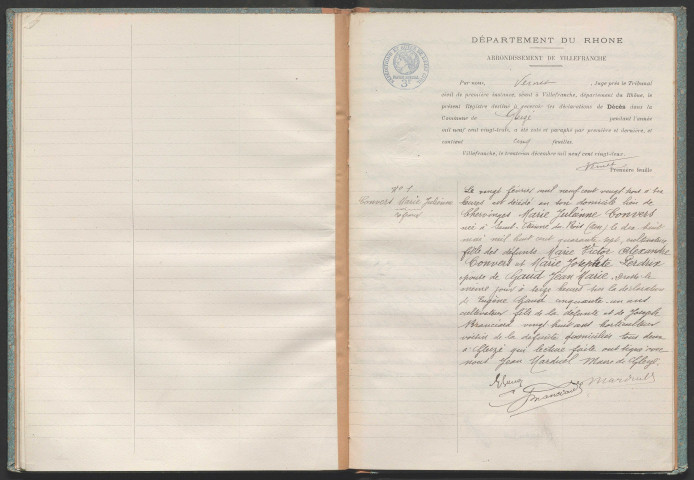 DÉPARTEMENT DU RHONE
ARRONDISSEMENT DE VILLEFRANCHE
Par nous, Vernet, Juge près le Tribunal
civil de première instance, séant à Villefranche, département du Rhône, le
présent Registre destiné à recevoir les déclarations de Décès dans la
Commune de Gleizé pendant l'année
mil neuf cent vingt-trois, a été coté et paraphé par première et dernière, et
contient feuilles.
Villefranche, le décembre mil neuf cent vingt-deux.
Première feuille
N° 1
Convers Marie Julienne
Le vingt février mil neuf cent vingt trois à
heures est décédé en son domicile lieu de
Chervinges Marie Julienne Convers
née à Saint Etienne du Bois (Ain) le dix huit
mil huit cent quarante sept,
fille des défunts Marie Victor Alexandre
Convers et Marie Josephte Perdrix
épouse de Gaud Jean Marie. Dressé le
même jour à seize heures sur la déclaration
de Eugène Gaud cinquante un ans
cultivateur fils de la défunte et de Joseph
vingt huit ans horticulteur
voisin de la défunte domiciliés tous deux
à Gleizé qui lecture faite ont signé avec
nous Jean Marduel Maire de Gleizé.
EGaud
Marduel